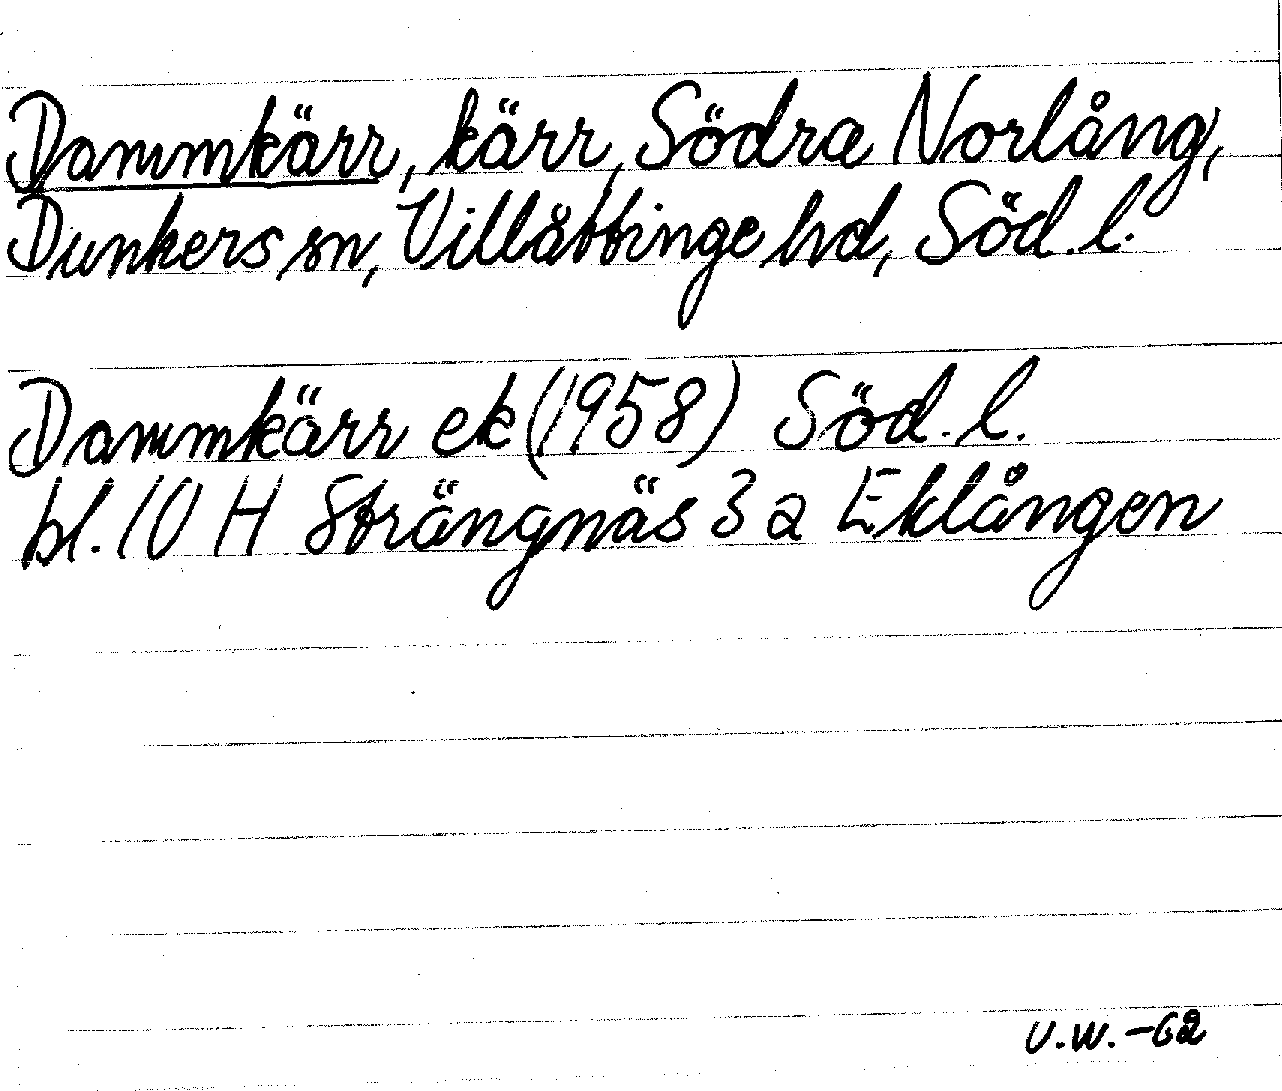 Dammkärr, kärr, Södra Norlång,
Dunkers sn, Villåttinge hd, Söd. l.
Dammkärr ek (1958) Söd. l.
bl. 10 H Strängnäs 3 a Eklången
U.W. -62